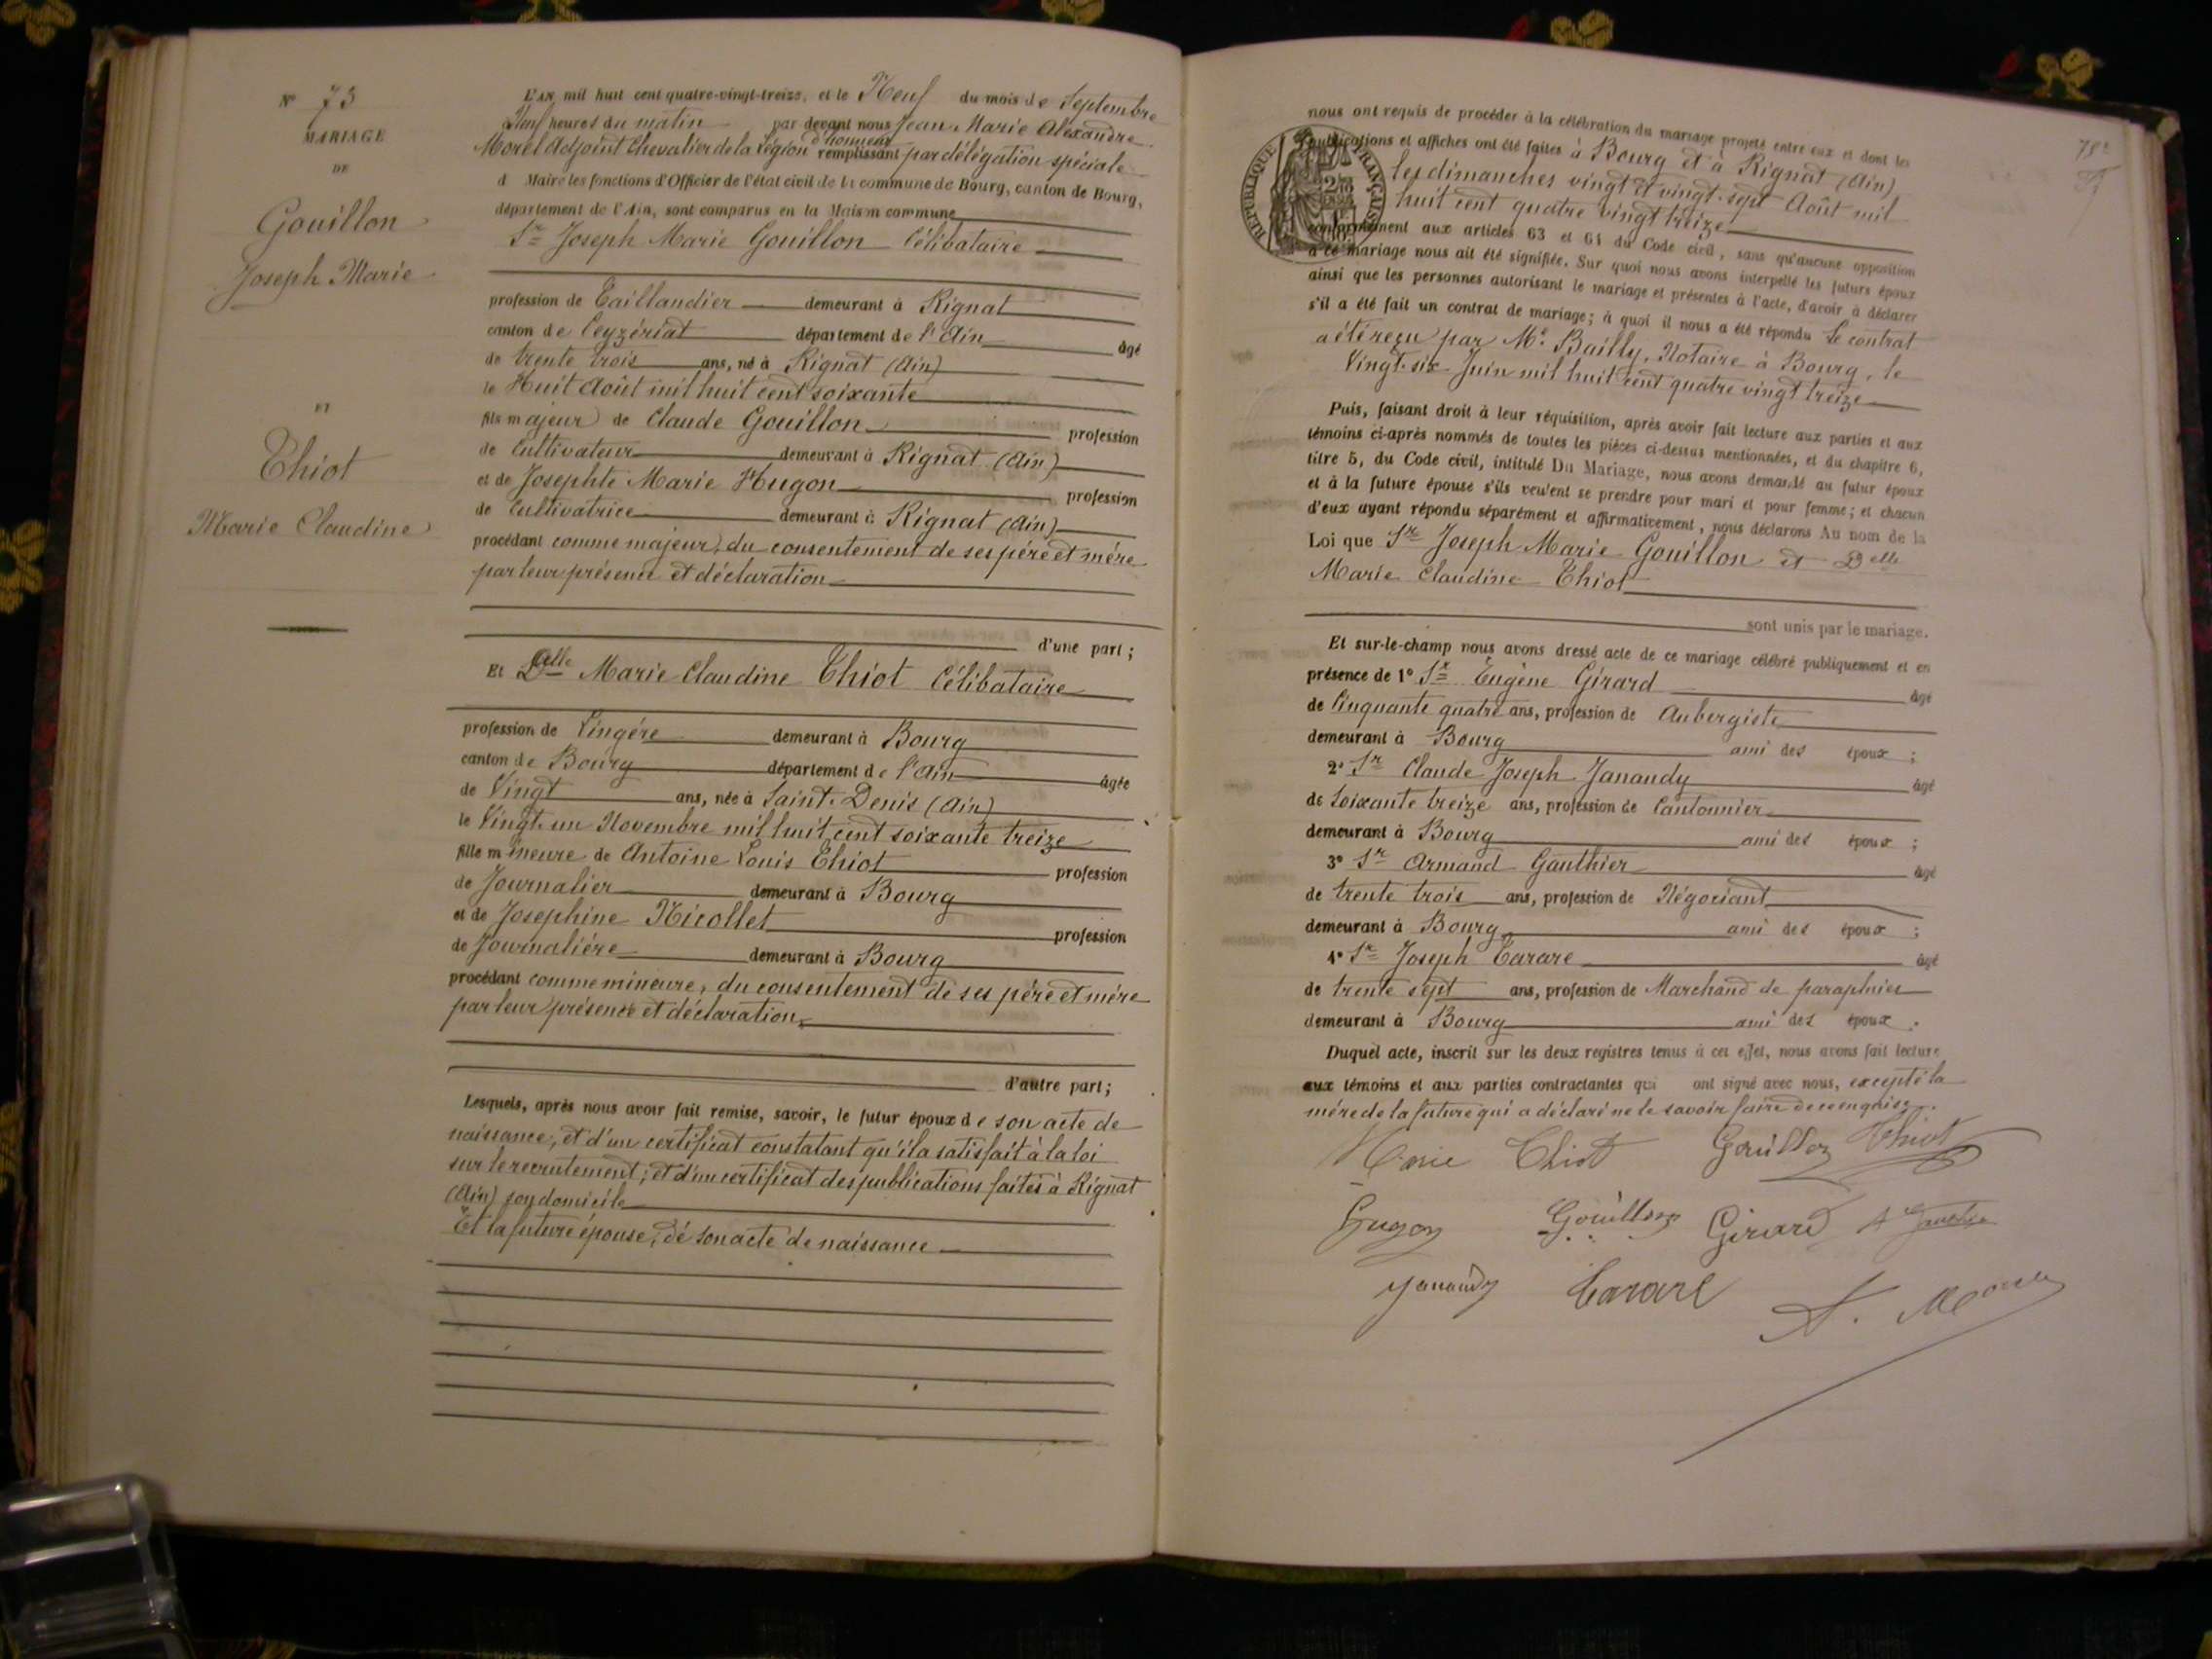 N° 73
MARIAGE
DE
Gouillon
Joseph Marie
ET
Thiot
Marie Claudine
L'AN mil huit cent quatre-vingt-treize, et le Neuf du mois de Septembre
Neuf heures du matin par devant nous Jean Marie Alexandre
Morel Adjoint Chevalier de la Légion d'honneur remplissant par délégation spéciale
d Maire les fonctions d'Officier de l'état civil de la commune de Bourg, canton de Bourg,
département de l'Ain, sont comparus en la Maison commune
Sr Joseph Marie Gouillon Célibataire
profession de Taillandier demeurant à Rignat
canton de Ceyzériat département de l'Ain âgé
de trente trois ans, né à Rignat (Ain)
le Huit Août mil huit cent soixante
fils majeur de Claude Gouillon profession
de Cultivateur demeurant à Rignat (Ain)
et de Josephte Marie Hugon profession
de Cultivatrice demeurant à Rignat (Ain)
procédant comme majeur, du consentement de ses père et mère
par leur présence et déclaration
d'une part ;
Et Delle Marie Claudine Thiot Célibataire
profession de Lingère demeurant à Bourg
canton de Bourg département de l'Ain âgée
de Vingt ans, née à Saint-Denis (Ain)
le Vingt-un Novembre mil huit cent soixante treize
fille mineure de Antoine Louis Thiot profession
de Journalier demeurant à Bourg
et de Josephine Nicollet profession
de Journalière demeurant à Bourg
procédant comme mineure, du consentement de ses père et mère
par leur présence et déclaration
d'autre part ;
Lesquels, après nous avoir fait remise, savoir, le futur époux de son acte de
naissance, et d'un certificat constatant qu'il a satisfait à la loi
sur le recrutement ; et d'un certificat des publications faites à Rignat
(Ain) son domicile
Et la future épouse, de son acte de naissance
nous ont requis de procéder à la célébration du mariage projeté entre eux et dont les
publications et affiches ont été faites à Bourg et à Rignat (Ain)
RÉPUBLIQUE FRANÇAISE
les dimanches vingt et vingt-sept Août mil
huit cent quatre vingt treize
conformément aux articles 63 et 64 du Code civil, sans qu'aucune opposition
à ce mariage nous ait été signifiée. Sur quoi nous avons interpellé les futurs époux
ainsi que les personnes autorisant le mariage et présentes à l'acte, d'avoir à déclarer
s'il a été fait un contrat de mariage ; à quoi il nous a été répondu Le contrat
a été reçu par Me Bailly, Notaire à Bourg, le
Vingt-six Juin mil huit cent quatre vingt treize
Puis, faisant droit à leur réquisition, après avoir fait lecture aux parties et aux
témoins ci-après nommés de toutes les pièces ci-dessus mentionnées, et du chapitre 6,
titre 5, du Code civil, intitulé Du Mariage, nous avons demandé au futur époux
et à la future épouse s'ils veulent se prendre pour mari et pour femme ; et chacun
d'eux ayant répondu séparément et affirmativement, nous déclarons Au nom de la
Loi que Sr Joseph Marie Gouillon et Delle
Marie Claudine Thiot
sont unis par le mariage.
Et sur-le-champ nous avons dressé acte de ce mariage célébré publiquement et en
présence de 1° Sr Eugène Girard âgé
de Cinquante quatre ans, profession de Aubergiste
demeurant à Bourg ami des époux ;
2° Sr Claude Joseph Janaudy âgé
de Soixante treize ans, profession de Cantonnier
demeurant à Bourg ami des époux ;
3° Sr Armand Gauthier âgé
de trente trois ans, profession de Négociant
demeurant à Bourg ami des époux ;
4° Sr Joseph Tarare âgé
de trente sept ans, profession de Marchand de parapluies
demeurant à Bourg ami des époux .
Duquel acte, inscrit sur les deux registres tenus à cet effet, nous avons fait lecture
aux témoins et aux parties contractantes qui ont signé avec nous, excepté la
mère de la future qui a déclaré ne le savoir faire de ce enquise.
Marie Thiot Gouillon Thiot
Hugon Gouillon Girard A Gauthier
Janaudy Tarare A. Morel